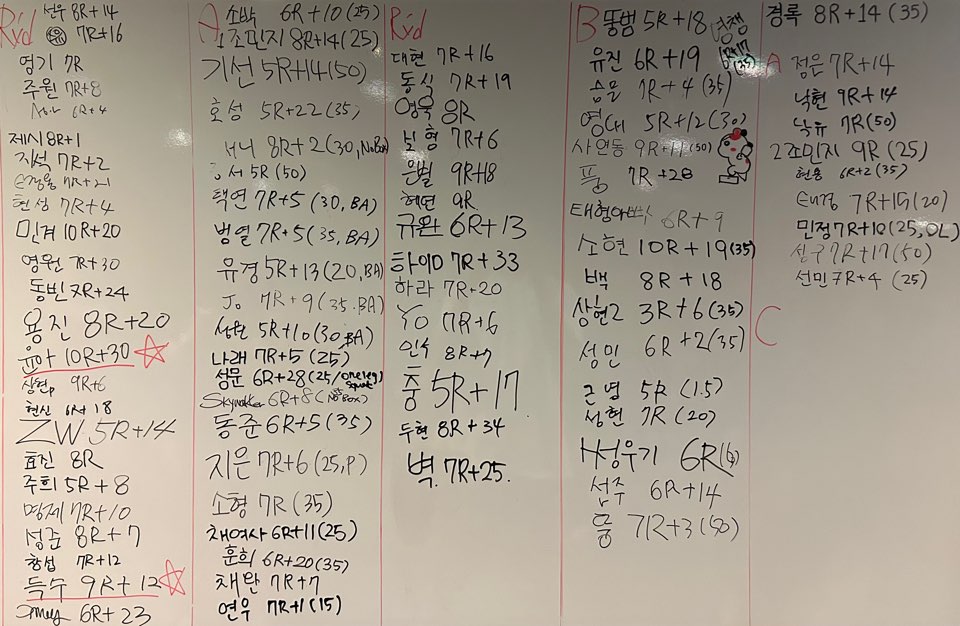 Rx'd
선우 8R+14
7R+16
영기 7R
주원 7R+8
6R+4
제시 8R+1
지석 7R+2
7R+21
현성 7R+4
민계 10R+20
영원 7R+30
동빈 7R+24
용진 8R+20
윤아 10R+30
상현 9R+6
현신 6R+18
ZW 5R+14
효진 8R
주희 5R+8
명제 7R+10
성준 8R+7
창섭 7R+12
득수 9R+12
Amy 6R+23
A
소박 6R+10 (25)
1조민지 8R+14 (25)
기선 5R+14 (50)
호성 5R+22 (35)
허니 8R+2 (30, No Box)
5R (50)
택연 7R+5 (30, BA)
범열 7R+5 (35, BA)
유경 5R+13 (20, BA)
Jo 7R+9 (35. BA)
상원 5R+10 (30, BA)
나래 7R+5 (25)
성문 6R+28 (25/one leg squat)
Skywalker 6R+8 (No Box)
동준 6R+5 (35)
지은 7R+6 (25, P)
소형 7R (35)
채여사 6R+11 (25)
훈희 6R+20 (35)
채완 7R+7
연우 7R+1 (15)
Rx'd
대현 7R+16
동식 7R+19
영욱 8R
보형 7R+6
은별 9R+18
혜연 9R
규완 6R+13
하이D 7R+33
하라 7R+20
YO 7R+6
인수 8R+7
충 5R+17
두현 8R+34
벽 7R+25.
B
뚱범 5R+18
명쟁
7R+17
(35)
유진 6R+19
승문 7R+4 (35)
영대 5R+12 (30)
사연동 9R+11 (50)
품 7R+28
태형아빠 6R+9
소현 10R+19 (35)
백 8R+18
상현2 3R+6 (35)
성민 6R+2 (35)
근영 5R (15)
성현 7R (20)
H성우기 6R
섭주 6R+14
품 7R+3 (50)
경록 8R+14 (35)
A
정은 7R+14
낙현 9R+14
낙유 7R (50)
2조민지 9R (25)
현웅 6R+2 (35)
7R+15 (20)
민정 7R+10 (25, OL)
7R+17 (50)
선민 7R+4 (25)
C